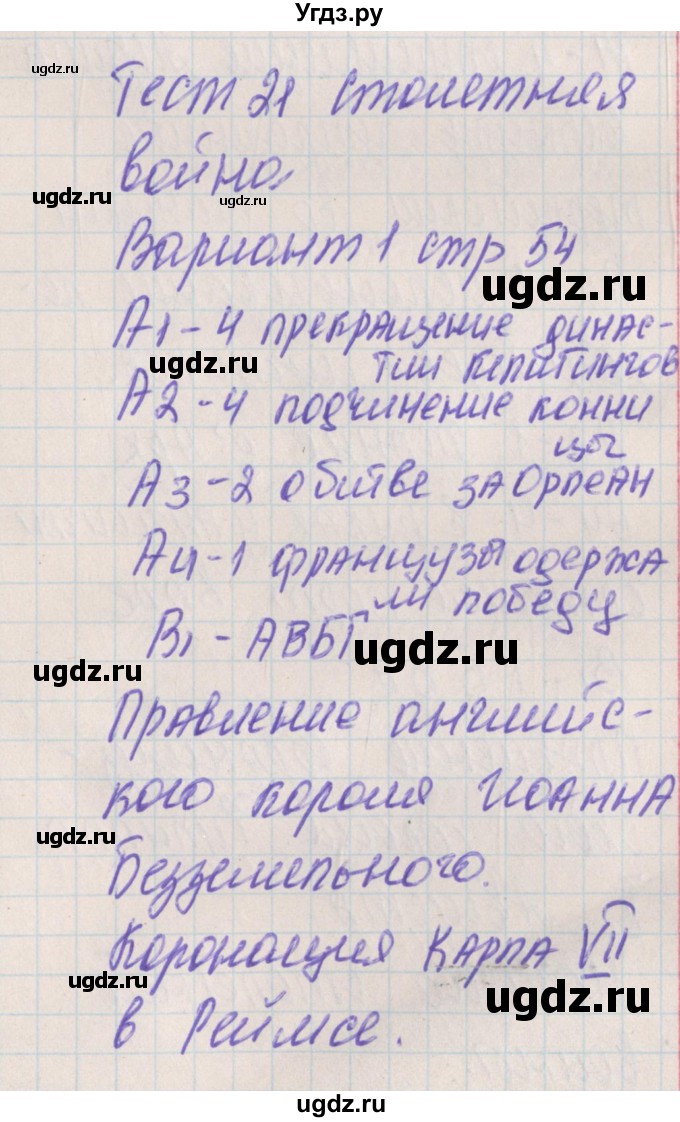 Угдз.ру
ugdz.ru
Тест 21 столетная
война
ugdz.ru
ugdz.ru
Вариант 1 стр 54
ugdz.ru
А1-4 прекращение динас-
ugdz.ru
тии Капитингов
А2-4 подчинение конни
цы
А3-2 о битве за Орлеан
А4-1 французы одержа
ли победу
В1-АВБГ
ugdz.ru
ugdz.ru
Правление английс-
кого короля Иоанна
ugdz.ru
Безземельного.
Коронация Карла VII
ugdz.ru
ugdz.ru
в Реймсе.
ugdz.ru